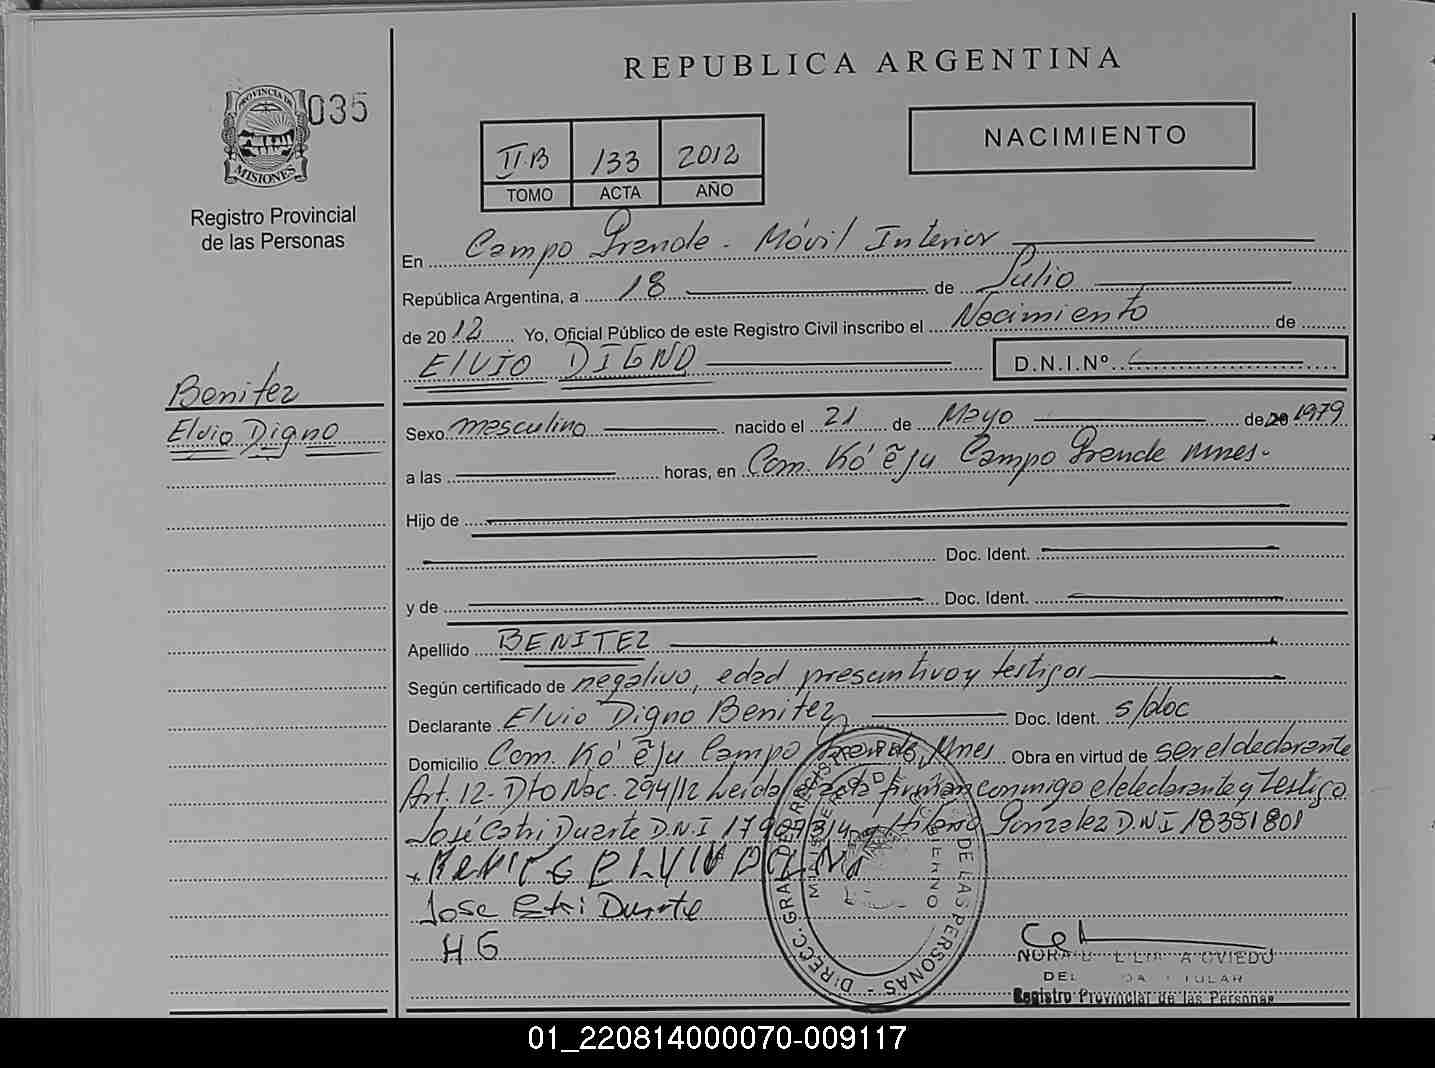 REPUBLICA ARGENTINA
035
PROVINCIA DE
MISIONES
Registro Provincial
de las Personas
NACIMIENTO
II B 133 2012
TOMO ACTA AÑO
En Campo Grande - Móvil Interior
República Argentina, a 18 de Julio
de 2012 Yo, Oficial Público de este Registro Civil inscribo el Nacimiento de
ELVIO DIGNO
D.N.I.Nº
Benitez
Elvio Digno
Sexo masculino nacido el 21 de Mayo de 20 1979
a las horas, en Com. Kó ẽju Campo Grande Mnes-
Hijo de
Doc. Ident.
y de Doc. Ident.
Apellido BENITEZ
Según certificado de negativo, edad presuntiva y testigos
Declarante Elvio Digno Benitez Doc. Ident. s/doc
Domicilio Com. Kó ẽju Campo Grande, Mnes Obra en virtud de ser el declarante
Art. 12 - Dto Nac. 294/12 Leida el acta firman conmigo el declarante y testigo
José Catri Duarte D.N.I Gonzalez D.N.I 18381801
Jose Duarte
H G
DIRECC. GRAL. DE REGISTRO PROV. DE LAS PERSONAS
MINISTERIO DE GOBIERNO
NORA OVIEDO
Registro Provincial de las Personas
01_220814000070-009117